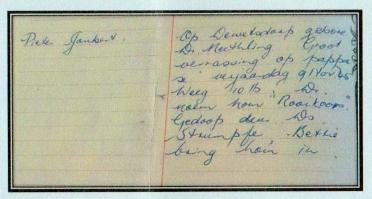 Piete Joubert.
Op Dewetsdorp gebore
Dr. Meethling Groot
verrassing op pappa
se verjaardag 9 Nov 25
Weeg 10 lb. Dr.
noem hom "Rooikoors"
Gedoop deur Ds.
Strumpfe. Bettie
bring hom in